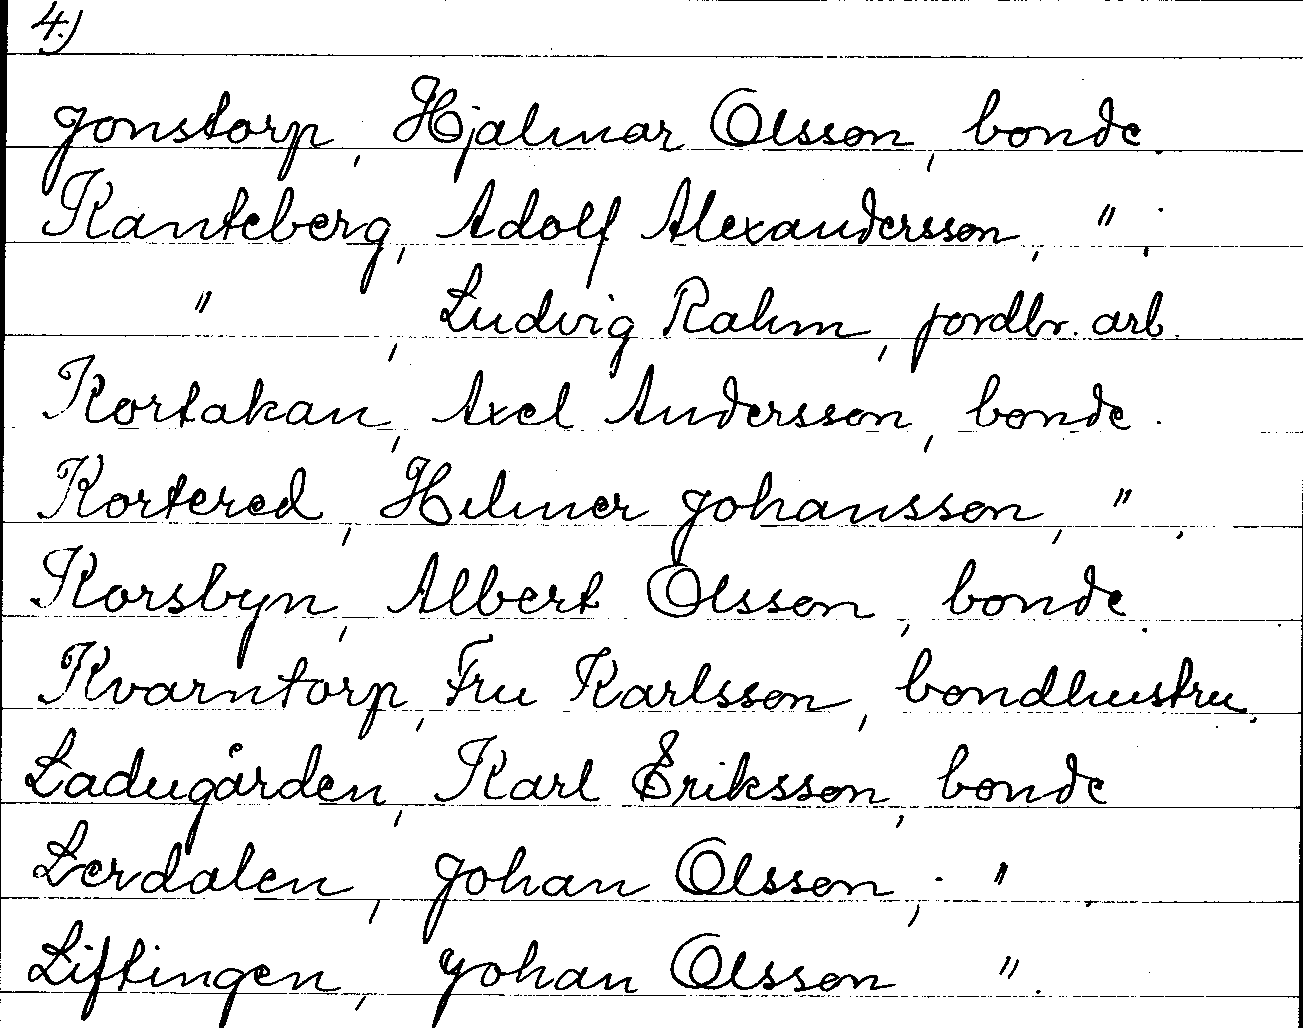 4.)
Jonstorp, Hjalmar Olsson, bonde.
Kanteberg, Adolf Alexandersson, ",.
" , Ludvig Rahm, jordbr. arb.
Kortakan, Axel Andersson, bonde.
Kortered, Helmer Johansson, ",.
Korsbyn, Albert Olsson, bonde.
Kvarntorp, Fru Karlsson, bondhustru.
Ladugården, Karl Eriksson, bonde
Lerdalen, Johan Olsson, ".
Liftingen, Johan Olsson ".